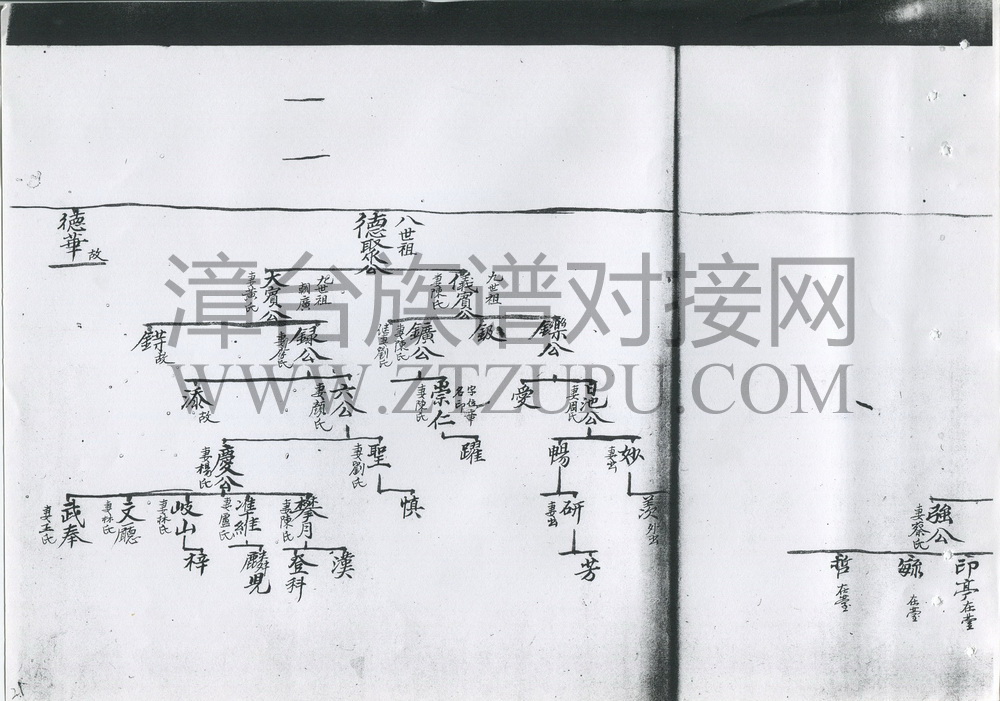 一
一
德華 故
八世祖
德聚公
九世祖
儀賓公
妻陳氏
九世祖
朝廣
天賓公
妻黃氏
鑠公
釵
鑛公
妻陳氏
繼妻劉氏
録公
故
日池公
妻周氏
愛
崇仁
妻陳氏
六公
妻顏氏
添 故
妙
妻出
暢
躍
聖
妻劉氏
慶公
妻楊氏
羨 外出
研
妻出
慎
攀月
妻陳氏
准維
妻盧氏
岐山
妻林氏
文廳
妻林氏
武奉
妻王氏
芳
漢
登科
麟兒
梓
強公
妻蔡氏
印亭 在堂
在堂
哲 在堂
漳台族谱对接网
WWW.ZTZUPU.COM
25